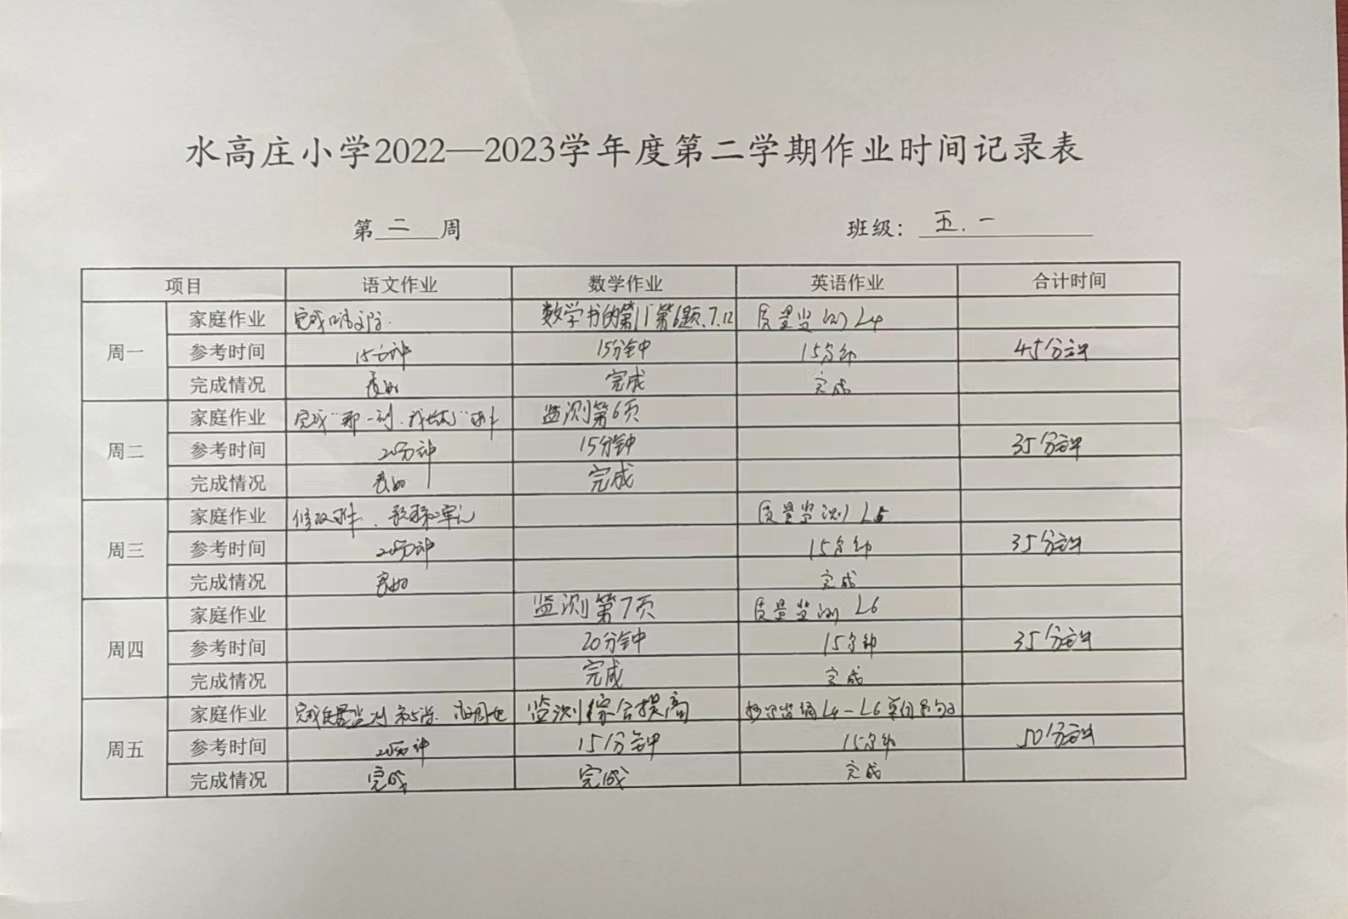 水高庄小学2022—2023学年度第二学期作业时间记录表
第 二 周 班级： 五.一
项目 语文作业 数学作业 英语作业 合计时间
周一 家庭作业 完成 数学书的第11第6题.7.12 质量监测L4
参考时间 15分钟 15分钟 15分钟 45分钟
完成情况 良好 完成 完成
周二 家庭作业 完成“那一刻.我长大” 监测第6页
参考时间 20分钟 15分钟 35分钟
完成情况 良好 完成
周三 家庭作业 修改 质量监测L5
参考时间 20分钟 15分钟 35分钟
完成情况 良好 完成
周四 家庭作业 监测第7页 质量监测L6
参考时间 20分钟 15分钟 35分钟
完成情况 完成 完成
周五 家庭作业 完成质量监测 监测综合提高 L4-L6
参考时间 20分钟 15分钟 15分钟 50分钟
完成情况 完成 完成 完成